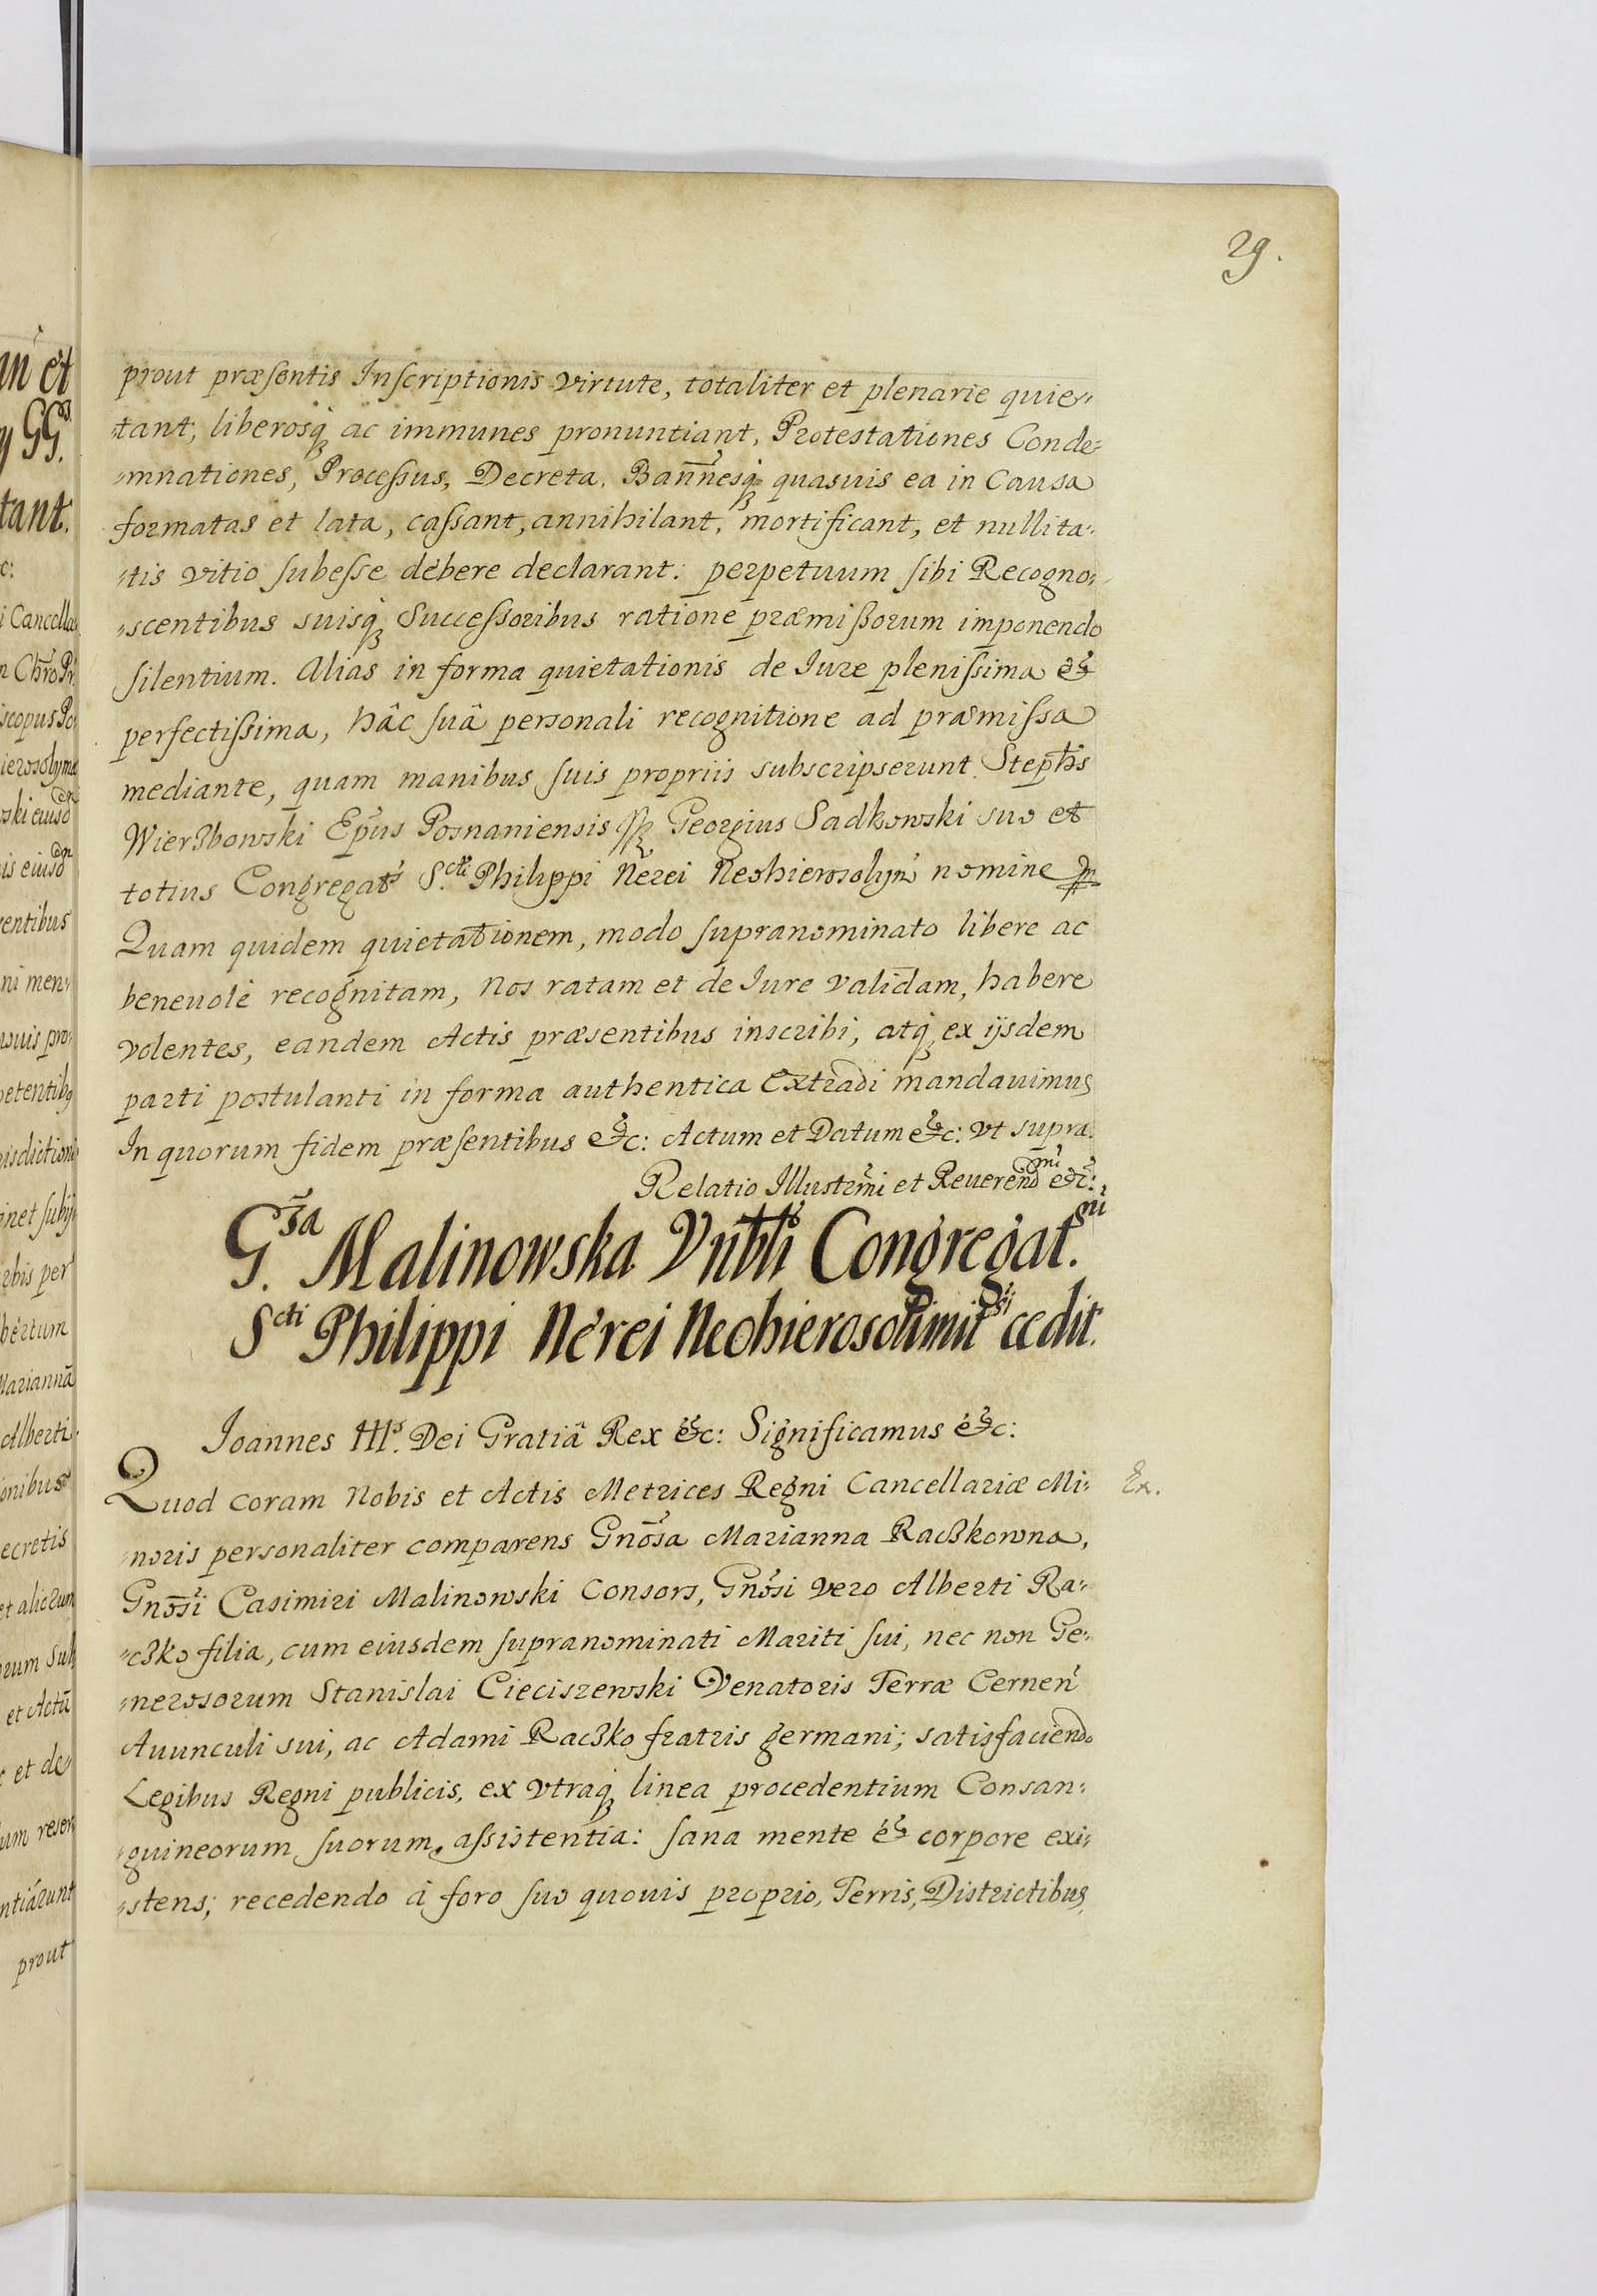 29.
prout præsentis Inscriptionis virtute, totaliter et plenarie quie„
tant, liberosq́ꝫ ac immunes pronuntiant, Protestationes Conde„
„mnationes, Processus, Decreta, Bann̄esq́ꝫ quasuis ea in Causa
formatas et lata, cassant, annihilant, mortificant, et nullita„
„tis vitio subesse debere declarant: perpetuum sibi Recogno„
„scentibus suisq́ꝫ Successoribus ratione præmissorum imponendo
silentium. Alias in forma quietationis de Iure plenissima et
perfectissima, hâc suâ personali recognitione ad præmissa
mediante, quam manibus suis propriis subscripserunt. Stephs
Wierzbowski Ep̃us Posnaniensis Georgius Sadkowski suo et
totius Congregat S.cti Philippi Nerei Neohierosolym̃ nomine
Quam quidem quietationem, modo supranominato libere ac
beneuolè recognitam, Nos ratam et de Iure validam, habere
volentes, eandem Actis præsentibus inscribi, atq́ꝫ ex ijsdem
parti postulanti in forma authentica extradi mandauimus
In quorum fidem præsentibus etc: Actum et Datum etc: vt supra.
Relatio Illustr̃mi et Reuerendmi etc:
G.sa Malinowska Vnbli Congregat.ni
Scti Philippi Nerei Neohierosolimit cedit.
Joannes III.s Dei Gratiâ Rex etc: Significamus etc:
Quod coram Nobis et Actis Metrices Regni Cancellariæ Mi„ Ex.
„noris personaliter comparens Gnōsa Marianna Raczkowna,
Gnōsi Casimiri Malinowski Consors, Gnōsi vero Alberti Ra„
„czko filia, cum eiusdem supranominati Mariti sui, nec non Ge„
„nerosorum Stanislai Cieciszewski Venatoris Terræ Cernen̄
Auunculi sui, ac Adami Raczko fratris germani; satisfaciendo
Legibus Regni publicis, ex vtraq́ꝫ linea procedentium Consan„
„guineorum suorum, assistentia: sana mente et corpore exi„
„stens; recedendo à foro suo quouis proprio, Terris, Districtibus,